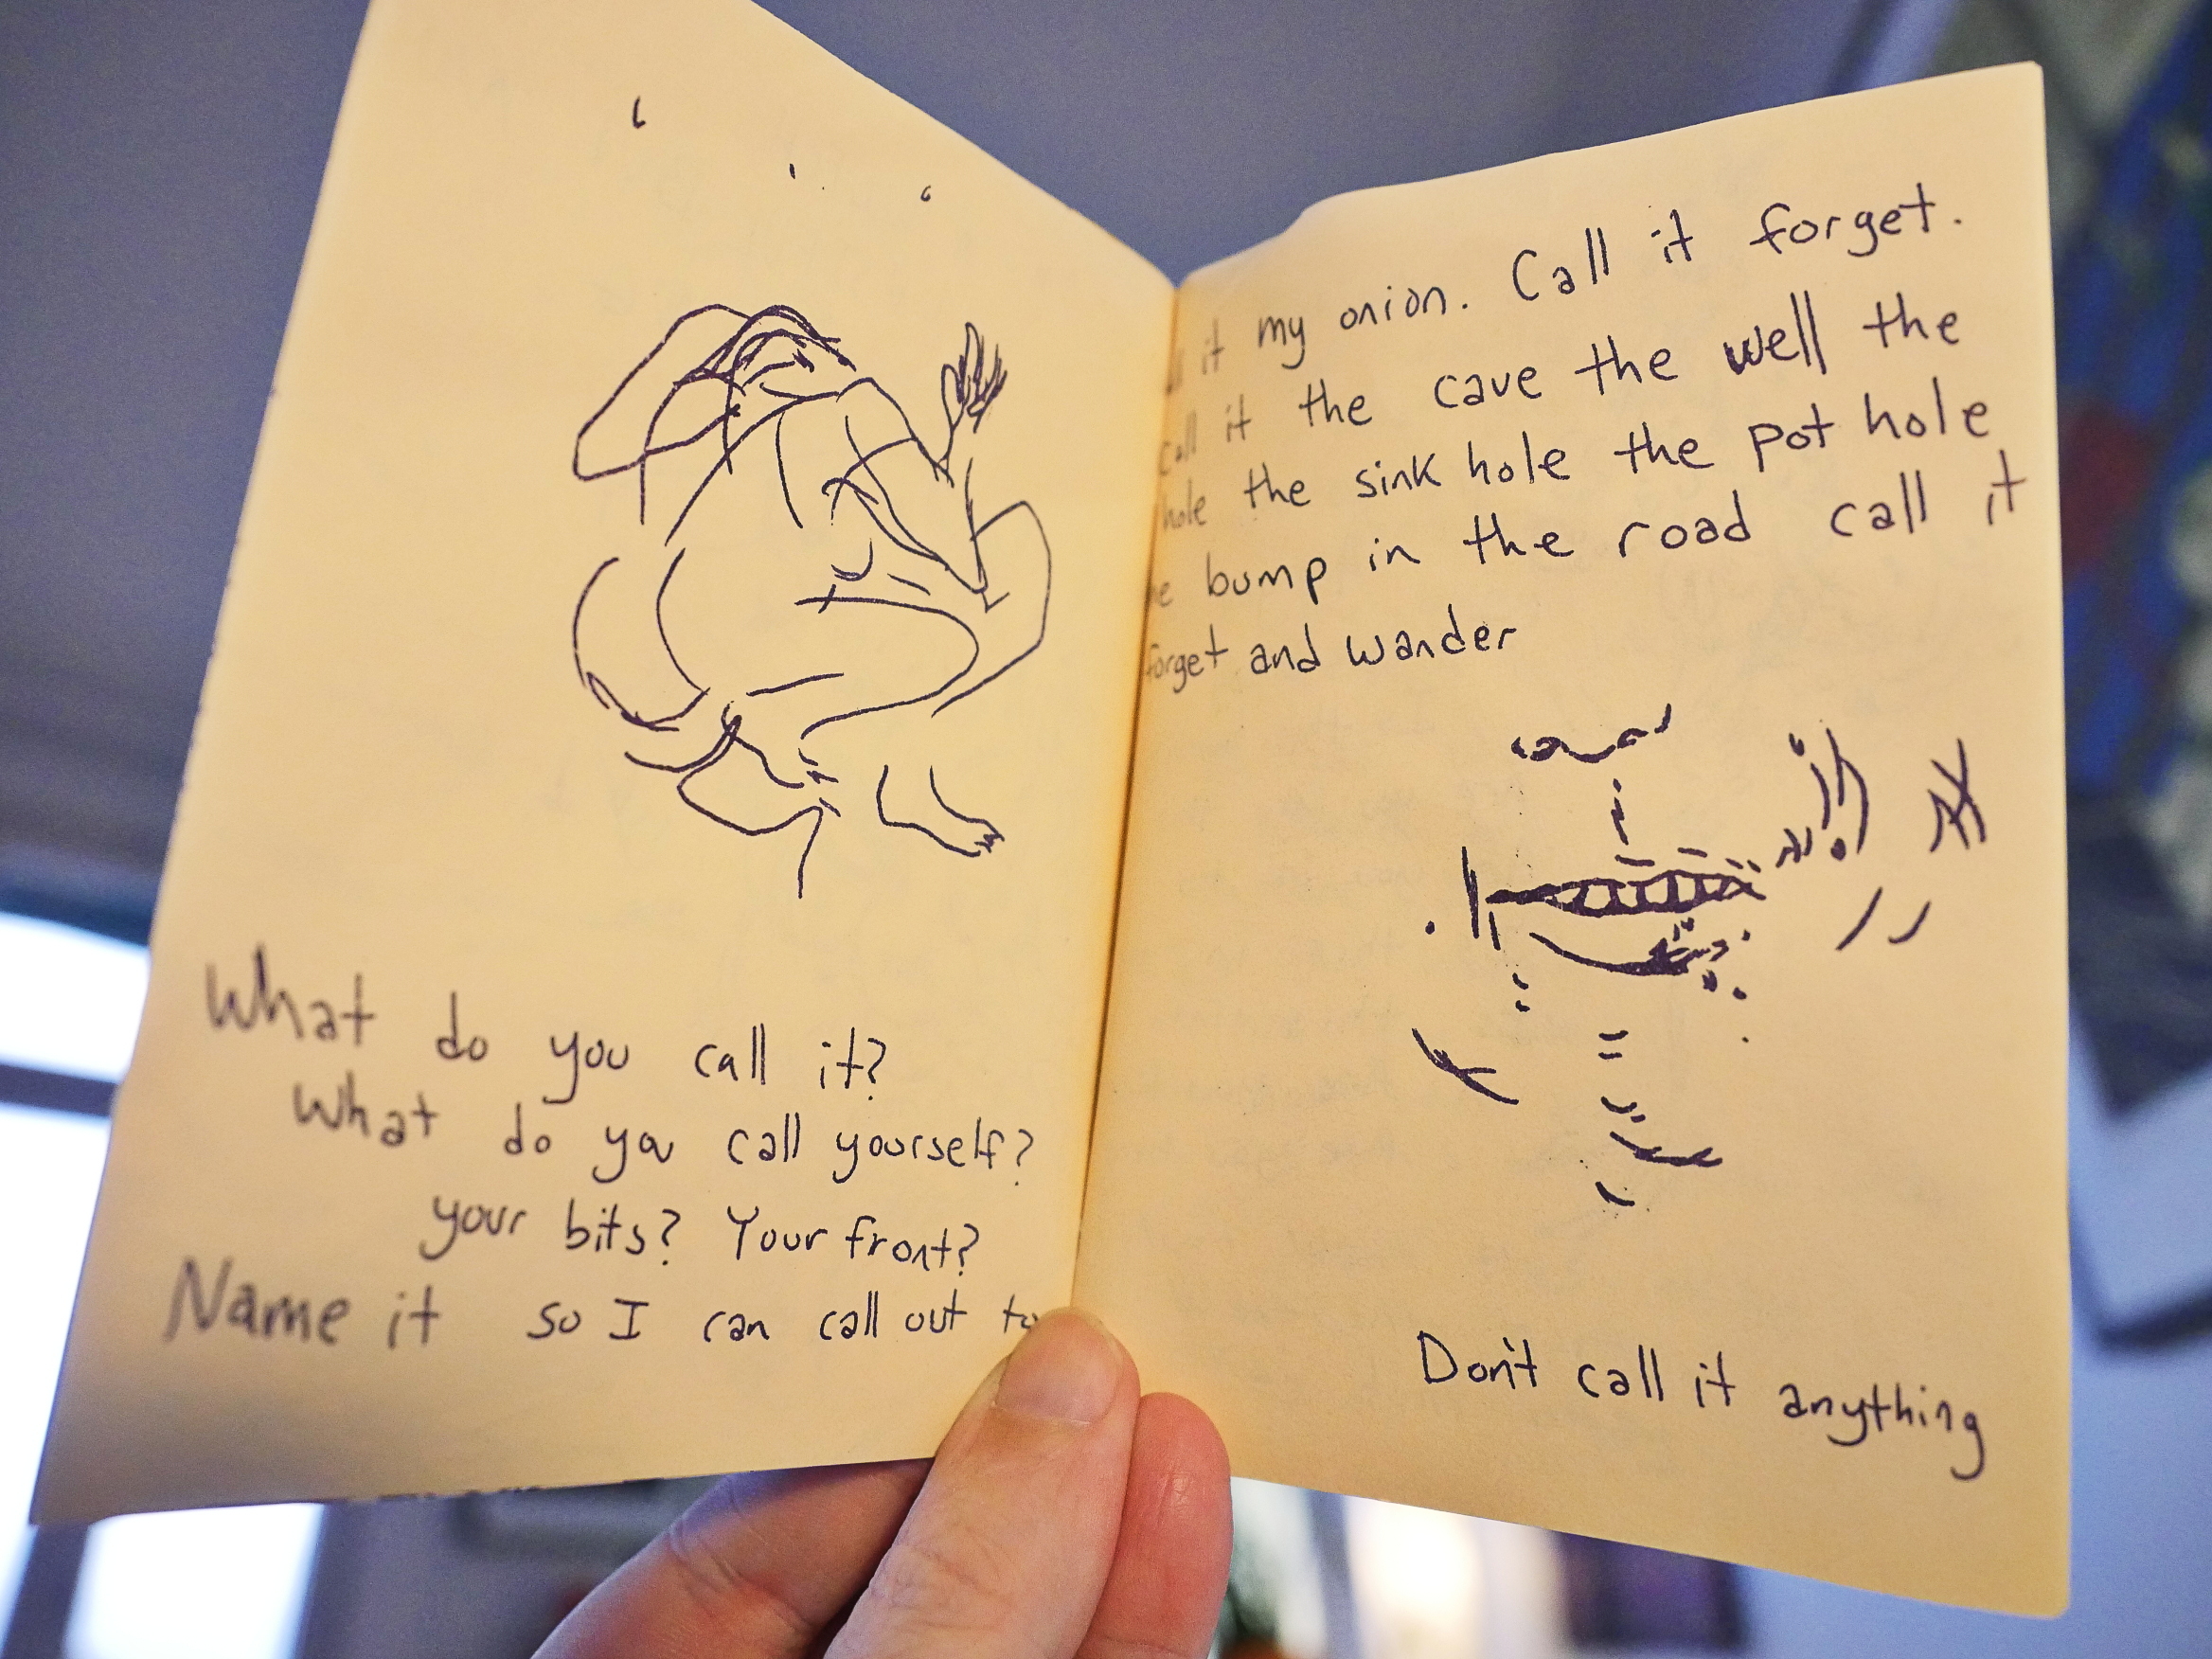 What do you call it?
What do you call yourself?
your bits? Your front?
Name it so I can call out to
it my onion. Call it forget.
call it the cave the well the
hole the sink hole the pot hole
bump in the road call it
forget and wander
Don't call it anything